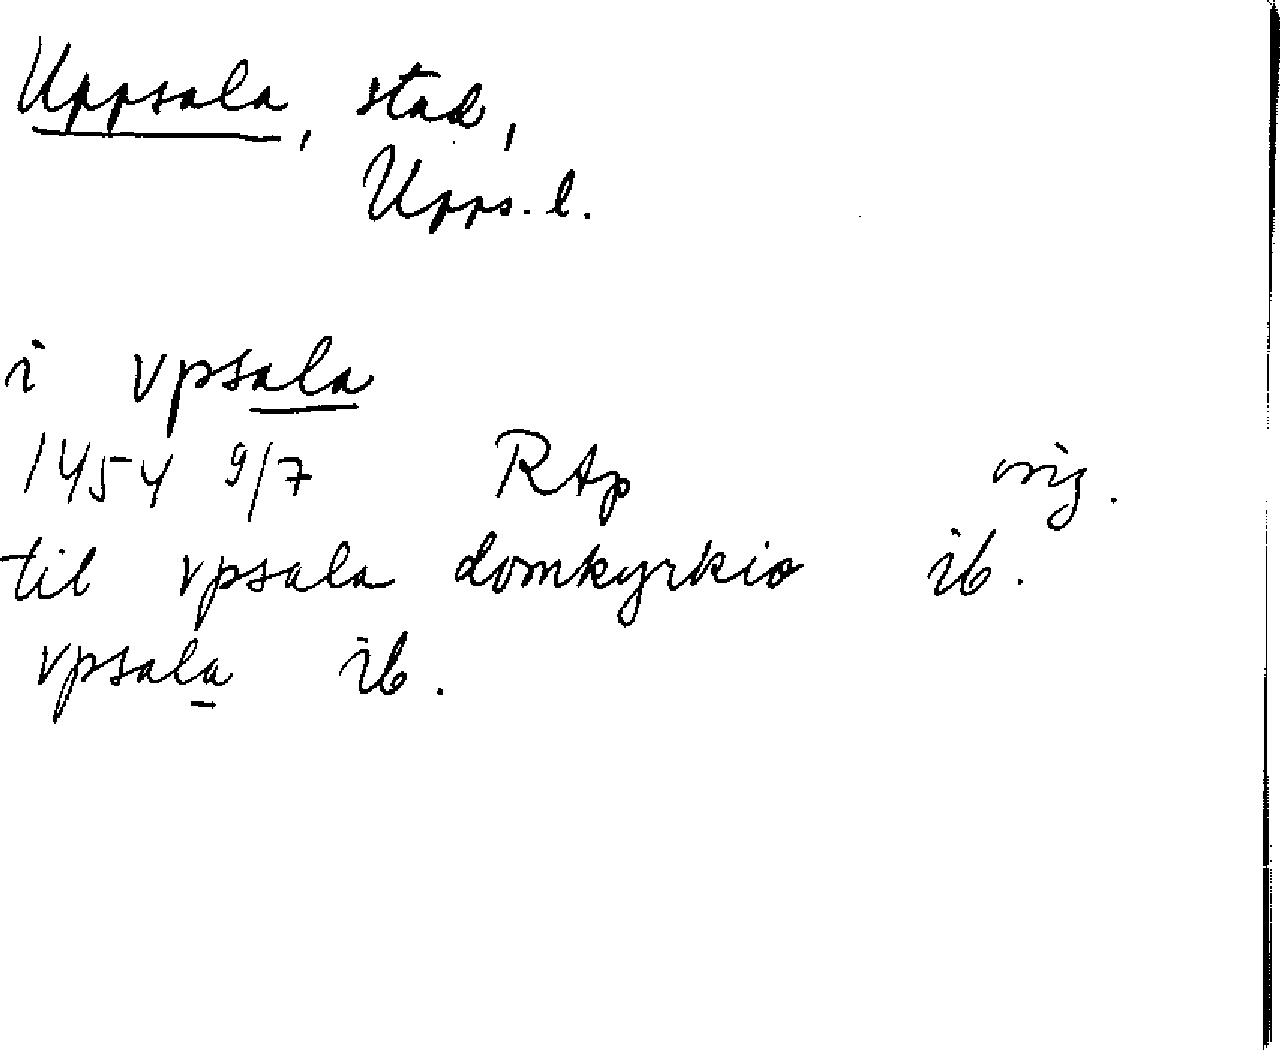 Uppsala, stad,
Upps. l.
i vpsala
1454 9/7 RAp orig.
til vpsala domkyrkio ib.
vpsala ib.